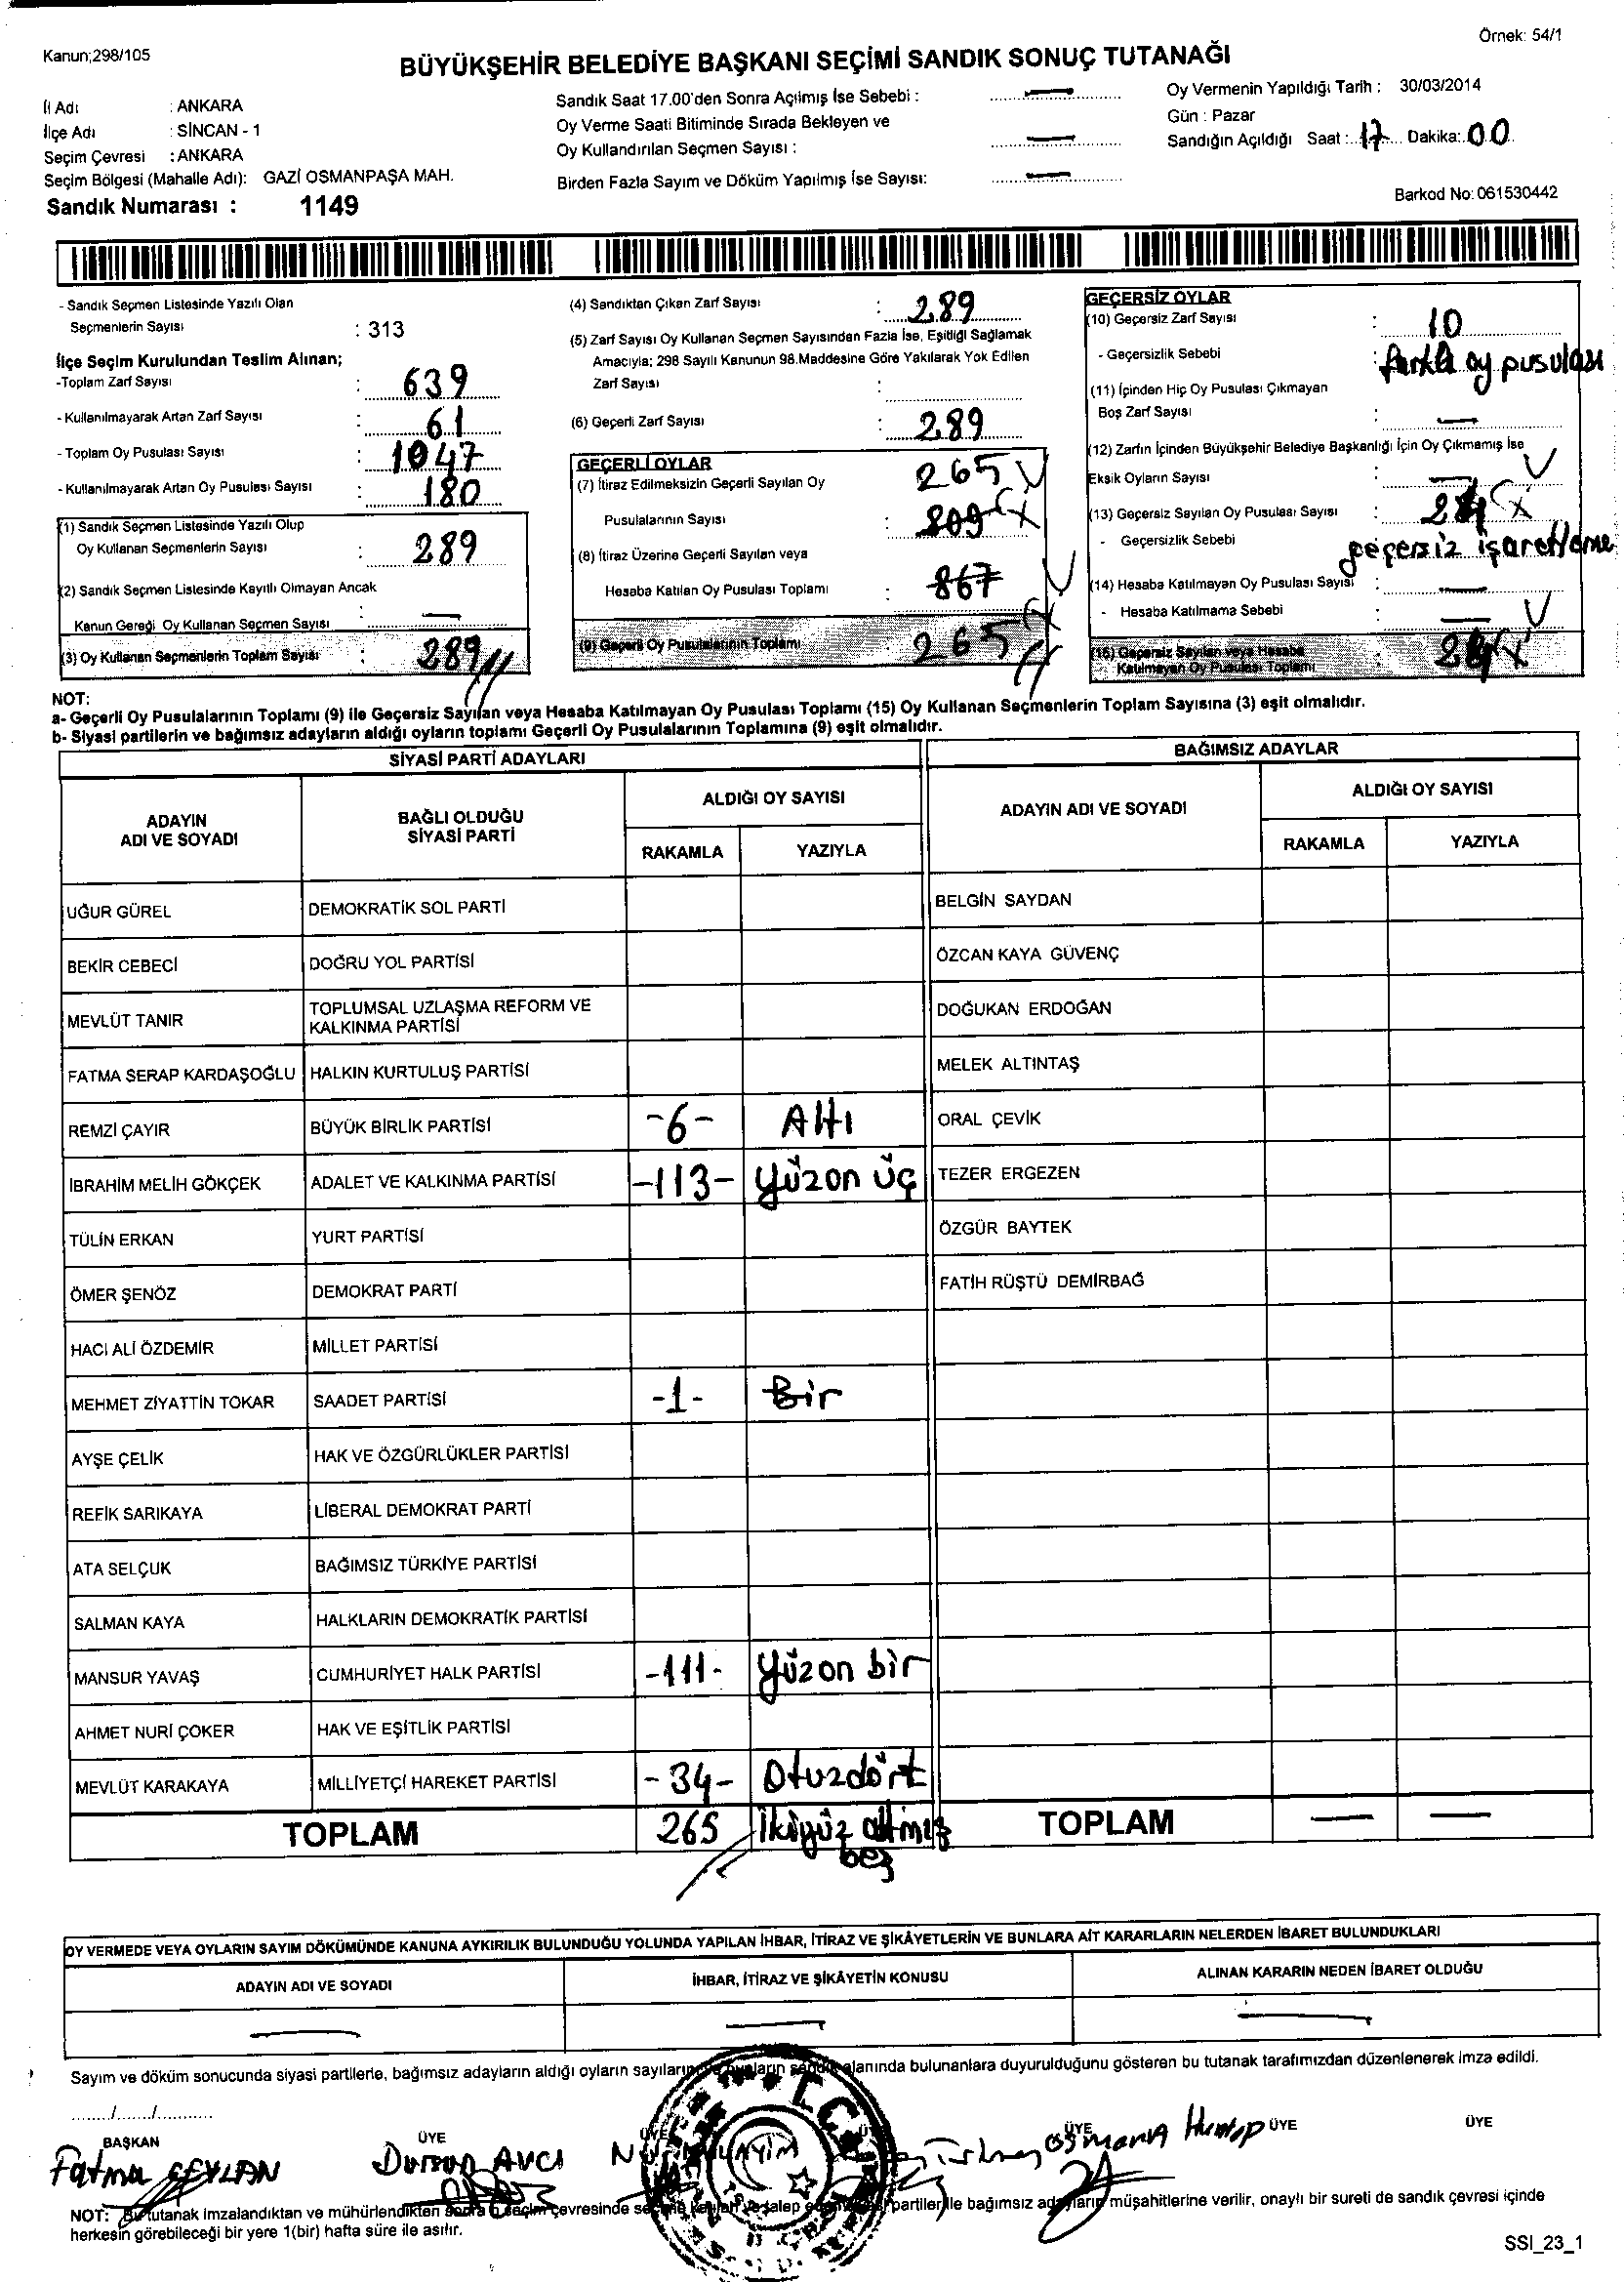 Örnek: 54/1
Kanun;298/105
BÜYÜKŞEHİR BELEDİYE BAŞKANI SEÇİMİ SANDIK SONUÇ TUTANAĞI
İl Adı : ANKARA
İlçe Adı : SİNCAN - 1
Seçim Çevresi : ANKARA
Seçim Bölgesi (Mahalle Adı): GAZİ OSMANPAŞA MAH.
Sandık Numarası : 1149
Sandık Saat 17.00'den Sonra Açılmış İse Sebebi : —
Oy Verme Saati Bitiminde Sırada Bekleyen ve
Oy Kullandırılan Seçmen Sayısı : —
Birden Fazla Sayım ve Döküm Yapılmış İse Sayısı: —
Oy Vermenin Yapıldığı Tarih : 30/03/2014
Gün : Pazar
Sandığın Açıldığı Saat : 17 Dakika: 00
Barkod No: 061530442
- Sandık Seçmen Listesinde Yazılı Olan
Seçmenlerin Sayısı : 313
İlçe Seçim Kurulundan Teslim Alınan;
-Toplam Zarf Sayısı : 639
- Kullanılmayarak Artan Zarf Sayısı : 61
- Toplam Oy Pusulası Sayısı : 1047
- Kullanılmayarak Artan Oy Pusulası Sayısı : 180
(1) Sandık Seçmen Listesinde Yazılı Olup
Oy Kullanan Seçmenlerin Sayısı : 289
(2) Sandık Seçmen Listesinde Kayıtlı Olmayan Ancak
Kanun Gereği Oy Kullanan Seçmen Sayısı : —
(3) Oy Kullanan Seçmenlerin Toplam Sayısı : 289
(4) Sandıktan Çıkan Zarf Sayısı : 289
(5) Zarf Sayısı Oy Kullanan Seçmen Sayısından Fazla İse, Eşitliği Sağlamak
Amacıyla; 298 Sayılı Kanunun 98.Maddesine Göre Yakılarak Yok Edilen
Zarf Sayısı :
(6) Geçerli Zarf Sayısı : 289
GEÇERLİ OYLAR
(7) İtiraz Edilmeksizin Geçerli Sayılan Oy 265
Pusulalarının Sayısı : 809
(8) İtiraz Üzerine Geçerli Sayılan veya
Hesaba Katılan Oy Pusulası Toplamı : 867
(9) Geçerli Oy Pusulalarının Toplamı 265
GEÇERSİZ OYLAR
(10) Geçersiz Zarf Sayısı : 10
- Geçersizlik Sebebi : farklı oy pusulası
(11) İçinden Hiç Oy Pusulası Çıkmayan
Boş Zarf Sayısı : —
(12) Zarfın İçinden Büyükşehir Belediye Başkanlığı İçin Oy Çıkmamış İse
Eksik Oyların Sayısı : —
(13) Geçersiz Sayılan Oy Pusulası Sayısı :
- Geçersizlik Sebebi geçersiz işaretleme
(14) Hesaba Katılmayan Oy Pusulası Sayısı : —
- Hesaba Katılmama Sebebi : —
(15) Geçersiz Sayılan veya Hesaba
Katılmayan Oy Pusulası Toplamı :
NOT:
a- Geçerli Oy Pusulalarının Toplamı (9) ile Geçersiz Sayılan veya Hesaba Katılmayan Oy Pusulası Toplamı (15) Oy Kullanan Seçmenlerin Toplam Sayısına (3) eşit olmalıdır.
b- Siyasi partilerin ve bağımsız adayların aldığı oyların toplamı Geçerli Oy Pusulalarının Toplamına (9) eşit olmalıdır.
SİYASİ PARTİ ADAYLARI
BAĞIMSIZ ADAYLAR
ADAYIN
ADI VE SOYADI
BAĞLI OLDUĞU
SİYASİ PARTİ
ALDIĞI OY SAYISI
RAKAMLA YAZIYLA
ADAYIN ADI VE SOYADI
ALDIĞI OY SAYISI
RAKAMLA YAZIYLA
UĞUR GÜREL DEMOKRATİK SOL PARTİ BELGİN SAYDAN
BEKİR CEBECİ DOĞRU YOL PARTİSİ ÖZCAN KAYA GÜVENÇ
MEVLÜT TANIR TOPLUMSAL UZLAŞMA REFORM VE
KALKINMA PARTİSİ DOĞUKAN ERDOĞAN
FATMA SERAP KARDAŞOĞLU HALKIN KURTULUŞ PARTİSİ MELEK ALTINTAŞ
REMZİ ÇAYIR BÜYÜK BİRLİK PARTİSİ -6- Altı ORAL ÇEVİK
İBRAHİM MELİH GÖKÇEK ADALET VE KALKINMA PARTİSİ -113- Yüzon üç TEZER ERGEZEN
TÜLİN ERKAN YURT PARTİSİ ÖZGÜR BAYTEK
ÖMER ŞENÖZ DEMOKRAT PARTİ FATİH RÜŞTÜ DEMİRBAĞ
HACI ALİ ÖZDEMİR MİLLET PARTİSİ
MEHMET ZİYATTİN TOKAR SAADET PARTİSİ -1- Bir
AYŞE ÇELİK HAK VE ÖZGÜRLÜKLER PARTİSİ
REFİK SARIKAYA LİBERAL DEMOKRAT PARTİ
ATA SELÇUK BAĞIMSIZ TÜRKİYE PARTİSİ
SALMAN KAYA HALKLARIN DEMOKRATİK PARTİSİ
MANSUR YAVAŞ CUMHURİYET HALK PARTİSİ -111- Yüzon bir
AHMET NURİ ÇOKER HAK VE EŞİTLİK PARTİSİ
MEVLÜT KARAKAYA MİLLİYETÇİ HAREKET PARTİSİ -34- Otuzdört
TOPLAM 265 İkiyüz altmış beş TOPLAM — —
OY VERMEDE VEYA OYLARIN SAYIM DÖKÜMÜNDE KANUNA AYKIRILIK BULUNDUĞU YOLUNDA YAPILAN İHBAR, İTİRAZ VE ŞİKÂYETLERİN VE BUNLARA AİT KARARLARIN NELERDEN İBARET BULUNDUKLARI
ADAYIN ADI VE SOYADI İHBAR, İTİRAZ VE ŞİKÂYETİN KONUSU ALINAN KARARIN NEDEN İBARET OLDUĞU
— — —
Sayım ve döküm sonucunda siyasi partilerle, bağımsız adayların aldığı oyların sayıların bunların sandık alanında bulunanlara duyurulduğunu gösteren bu tutanak tarafımızdan düzenlenerek imza edildi.
......../......../...........
BAŞKAN ÜYE ÜYE ÜYE ÜYE ÜYE
Fatma CEYLAN Durron AVCI Osman
NOT: Bu tutanak imzalandıktan ve mühürlendikten sonra o seçim çevresinde seçime katılan ve talep eden partiler ile bağımsız adayların müşahitlerine verilir, onaylı bir sureti de sandık çevresi içinde
herkesin görebileceği bir yere 1(bir) hafta süre ile asılır.
SSI_23_1